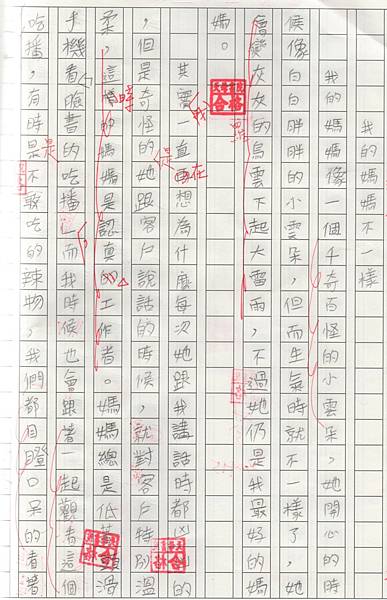 我的媽媽不一樣
我的媽媽像一個千奇百怪的小雲朵，她開心的時
候像白白胖胖的小雲朵，但而生氣時就不一樣了，她時
會變灰灰的烏雲下起大雷雨，不過她仍是我最好的媽
媽。
合格
其實一直再想為什麼每次她跟我講話時都凶凶的
我
在
，但是奇怪的她跟客戶說話的時候，就對客戶特別溫
是
柔，這情的媽媽是認真的工作者。媽媽總是低著頭滑
時
手機看臉書的吃播，而我時候也會跟著一起觀看這個
吃播，有時是是不敢吃的辣物，我們都目瞪口呆的看著
是